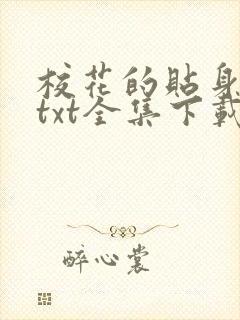 校花的貼身
txt全集下載
醉心裳